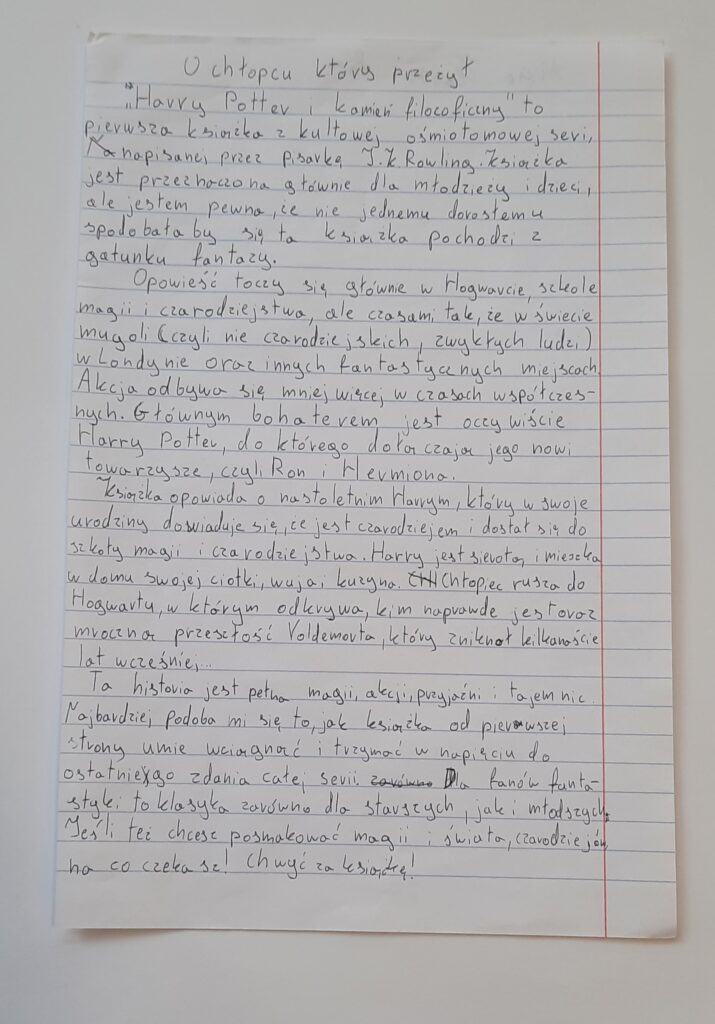 O chłopcu który przeżył
"Harry Potter i kamień filocoficzny" to
pierwsza książka z kultowej ośmiotomowej seri,
napisanej przez pisarkę J.K.Rowling. Książka
jest przeznaczona głównie dla młodzieży i dzieci,
ale jestem pewna, że nie jednemu dorosłemu
spodobałaby się ta książka pochodzi z
gatunku fantazy.
Opowieść toczy się głównie w Hogwarcie, szkole
magii i czarodziejstwa, ale czasami tak, że w świecie
mugoli (czyli nie czarodziejskich, zwykłych ludzi)
w Londynie oraz innych fantastycznych miejscach.
Akcja odbywa się mniej więcej w czasach współczes-
nych. Głównym bohaterem jest oczywiście
Harry Potter, do którego dołączają jego nowi
towarzysze, czyli Ron i Hermiona.
Książka opowiada o nastoletnim Harrym, który w swoje
urodziny dowiaduje się, że jest czarodziejem i dostał się do
szkoły magii i czarodziejstwa. Harry jest sierotą i mieszka
w domu swojej ciotki, wuja i kuzyna. Chłopiec rusza do
Hogwartu, w którym odkrywa, kim naprawde jest oraz
mroczną przeszłość Voldemorta, który zniknął kilkanaście
lat wcześniej...
Ta historia jest pełna magii, akcji, przyjaźni i tajemnic.
Najbardziej podoba mi się to, jak książka od pierwszej
strony umie wciągnąć i trzymać w napięciu do
ostatniego zdania całej serii. zarówno Dla fanów fanta-
styki to klasyka zarówno dla starszych, jak i młodszych.
Jeśli też chcesz posmakować magii i świata, czarodziejów
na co czekasz! Chwyć za książkę!